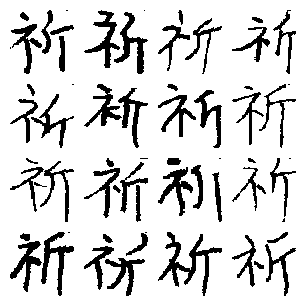 祈祈祈祈
祈祈祈祈
祈祈祈祈
祈祈祈祈